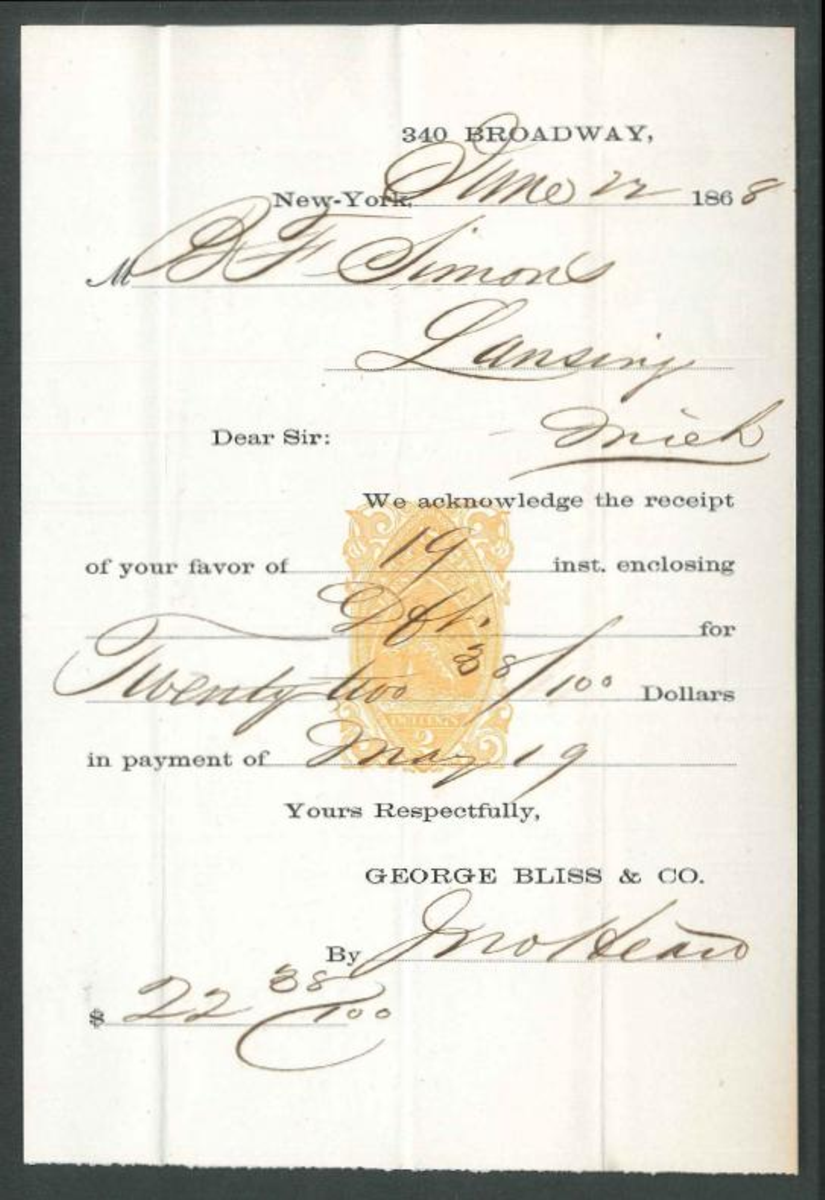 340 BROADWAY,
New-York, June 22 1868
M B F Simons
Lansing
Dear Sir: Mich
We acknowledge the receipt
of your favor of 19 inst. enclosing
Dft. for
Twenty two 38/100 Dollars
in payment of May 19
Yours Respectfully,
GEORGE BLISS & CO.
By Jno Heard
$ 22 38/100